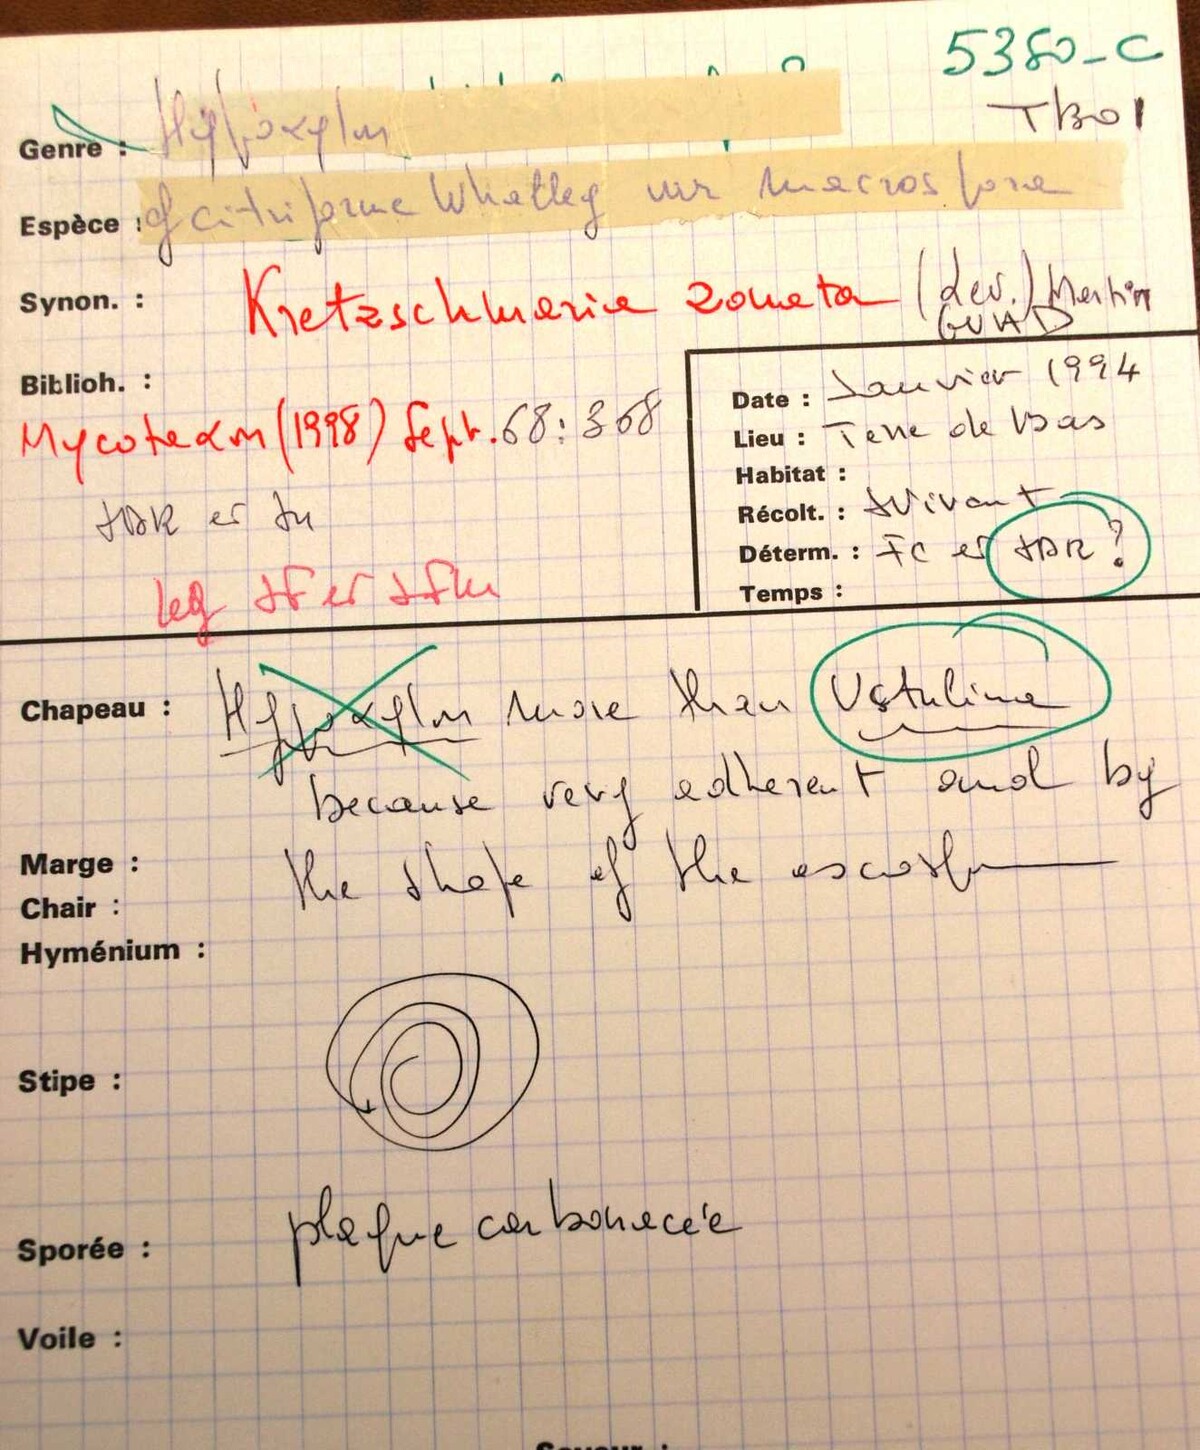 5380-C
TB01
Genre : Hypoxylon
Espèce : cf citriforme Whalley var macrospora
Synon. : Kretzschmaria zonata (Lev.) Martin
GUAD
Biblioh. :
Mycotaxon (1998) Sept. 68: 368
JDR et
leg
Date : Janvier 1994
Lieu : Terre de Bas
Habitat :
Récolt. : Vivant
Déterm. : FC et JDR ?
Temps :
Chapeau : Hypoxylon more than Ustulina
because very adherent and by
the shape of the
Marge :
Chair :
Hyménium :
Stipe :
plaque carbonacée
Sporée :
Voile :
Saveur :